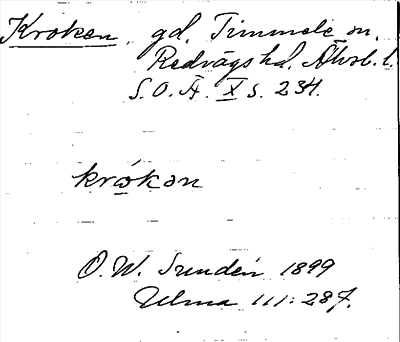 Kroken, gd. Timmele sn.
Redvägs hd. Älvsb. l.
S.O.Ä. X s. 234.
krokən
O.W. Sundén 1899
Ulma 111:287.